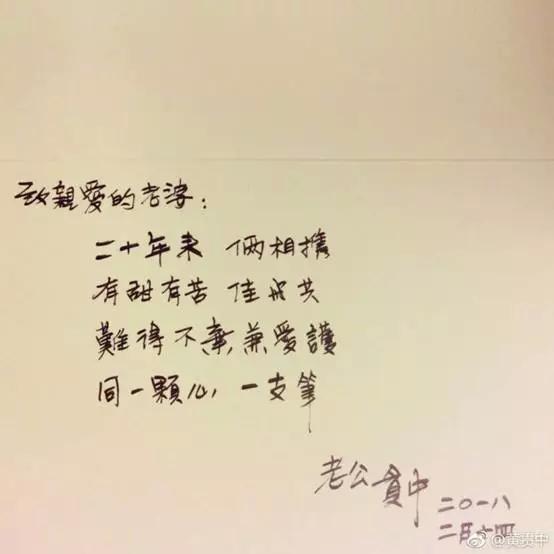 致親愛的老婆：
二十年来 倆相携
有甜有苦 佳必共
難得不棄，兼愛護
同一顆心，一支筆
老公貢中
二〇一八
二月十四
@黄贡中